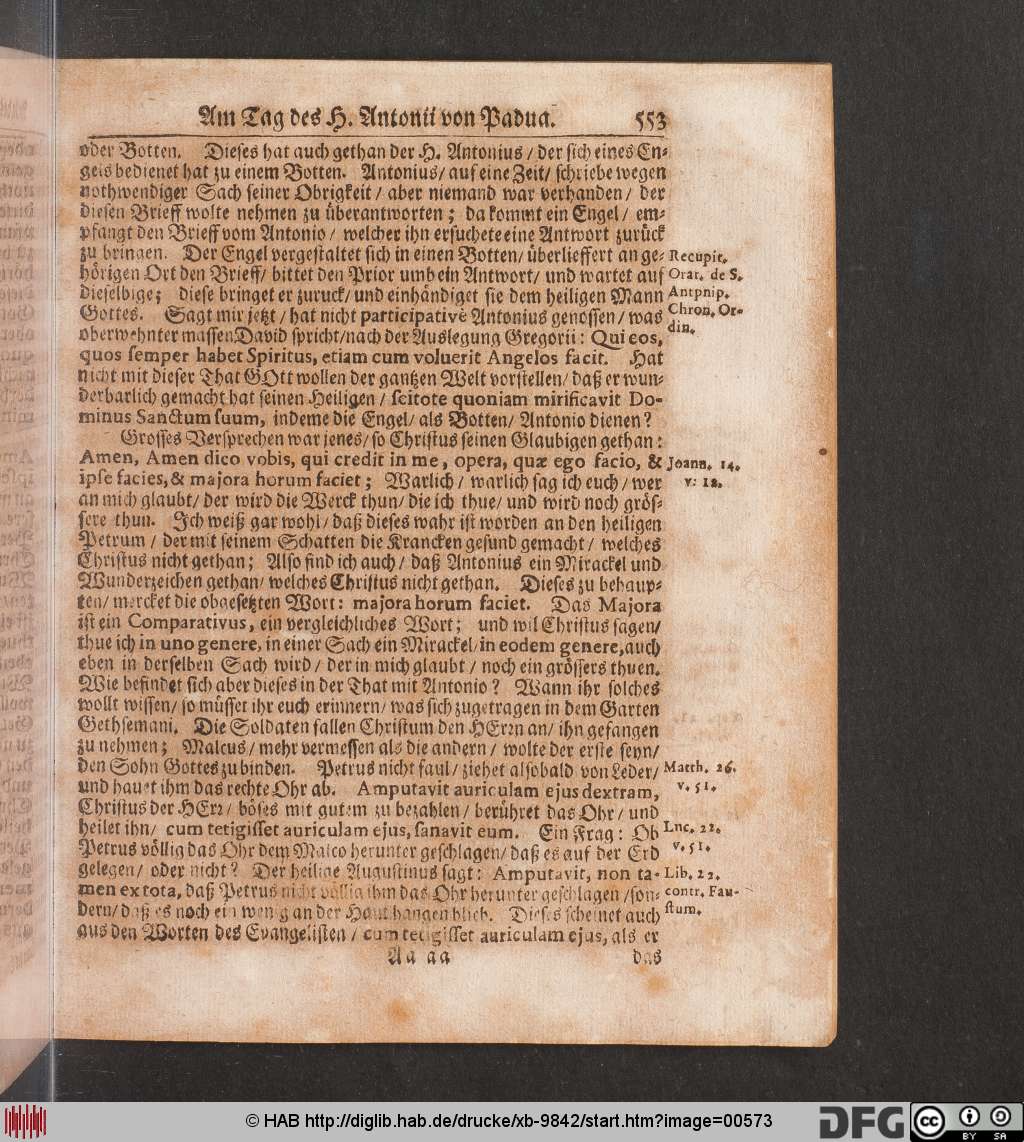 Am Tag des H. Antonii von Padua. 553
oder Botten. Dieses hat auch gethan der H. Antonius / der sich eines En-
gels bedienet hat zu einem Botten. Antonius / auf eine Zeit / schriebe wegen
nothwendiger Sach seiner Obrigkeit / aber niemand war verhanden / der
diesen Brieff wolte nehmen zu überantworten; da kommt ein Engel / em-
pfangt den Brieff vom Antonio / welcher ihn ersuchete eine Antwort zurück
zu bringen. Der Engel vergestaltet sich in einen Botten / überlieffert an ge-
hörigen Ort den Brieff / bittet den Prior umb ein Antwort / und wartet auf
dieselbige; diese bringet er zuruck / und einhändiget sie dem heiligen Mann
Gottes. Sagt mir jetzt / hat nicht participativè Antonius genossen / was
oberwehnter massen David spricht / nach der Auslegung Gregorii: Qui eos,
quos semper habet Spiritus, etiam cum voluerit Angelos facit. Hat
nicht mit dieser That GOtt wollen der gantzen Welt vorstellen / daß er wun-
derbarlich gemacht hat seinen Heiligen / scitote quoniam mirificavit Do-
minus Sanctum suum, indeme die Engel / als Botten / Antonio dienen?
Recupit.
Orat. de S.
Antpnip.
Chron. Or-
din.
Grosses Versprechen war jenes / so Christus seinen Glaubigen gethan:
Amen, Amen dico vobis, qui credit in me, opera, quæ ego facio, &
ipse facies, & majora horum faciet; Warlich / warlich sag ich euch / wer
an mich glaubt / der wird die Werck thun / die ich thue / und wird noch grös-
sere thun. Ich weiß gar wohl / daß dieses wahr ist worden an den heiligen
Petrum / der mit seinem Schatten die Krancken gesund gemacht / welches
Christus nicht gethan; Also find ich auch / daß Antonius ein Mirackel und
Wunderzeichen gethan / welches Christus nicht gethan. Dieses zu behaup-
ten / mercket die obgesetzten Wort: majora horum faciet. Das Majora
ist ein Comparativus, ein vergleichliches Wort; und wil Christus sagen /
thue ich in uno genere, in einer Sach ein Mirackel / in eodem genere, auch
eben in derselben Sach wird / der in mich glaubt / noch ein grössers thuen.
Wie befindet sich aber dieses in der That mit Antonio? Wann ihr solches
wollt wissen / so müsset ihr euch erinnern / was sich zugetragen in dem Garten
Gethsemani. Die Soldaten fallen Christum den HErrn an / ihn gefangen
zu nehmen; Malcus / mehr vermessen als die andern / wolte der erste seyn /
den Sohn Gottes zu binden. Petrus nicht faul / ziehet alsobald von Leder /
und hauet ihm das rechte Ohr ab. Amputavit auriculam ejus dextram,
Christus der HErr / böses mit gutem zu bezahlen / berühret das Ohr / und
heilet ihn / cum tetigisset auriculam ejus, sanavit eum. Ein Frag: Ob
Petrus völlig das Ohr dem Malco herunter geschlagen / daß es auf der Erd
gelegen / oder nicht? Der heilige Augustinus sagt: Amputavit, non ta-
men ex tota, daß Petrus nicht völlig ihm das Ohr herunter geschlagen / son-
dern / daß es noch ein wenig an der Haut hangen blieb. Dieses scheinet auch
aus den Worten des Evangelisten / cum tetigisset auriculam ejus, als er
Joann. 14.
v: 12.
Matth. 26.
v. 51.
Luc. 22.
v. 51.
Lib. 22.
contr. Fau-
stum.
Aa aa das
© HAB http://diglib.hab.de/drucke/xb-9842/start.htm?image=00573
DFG
cc BY SA